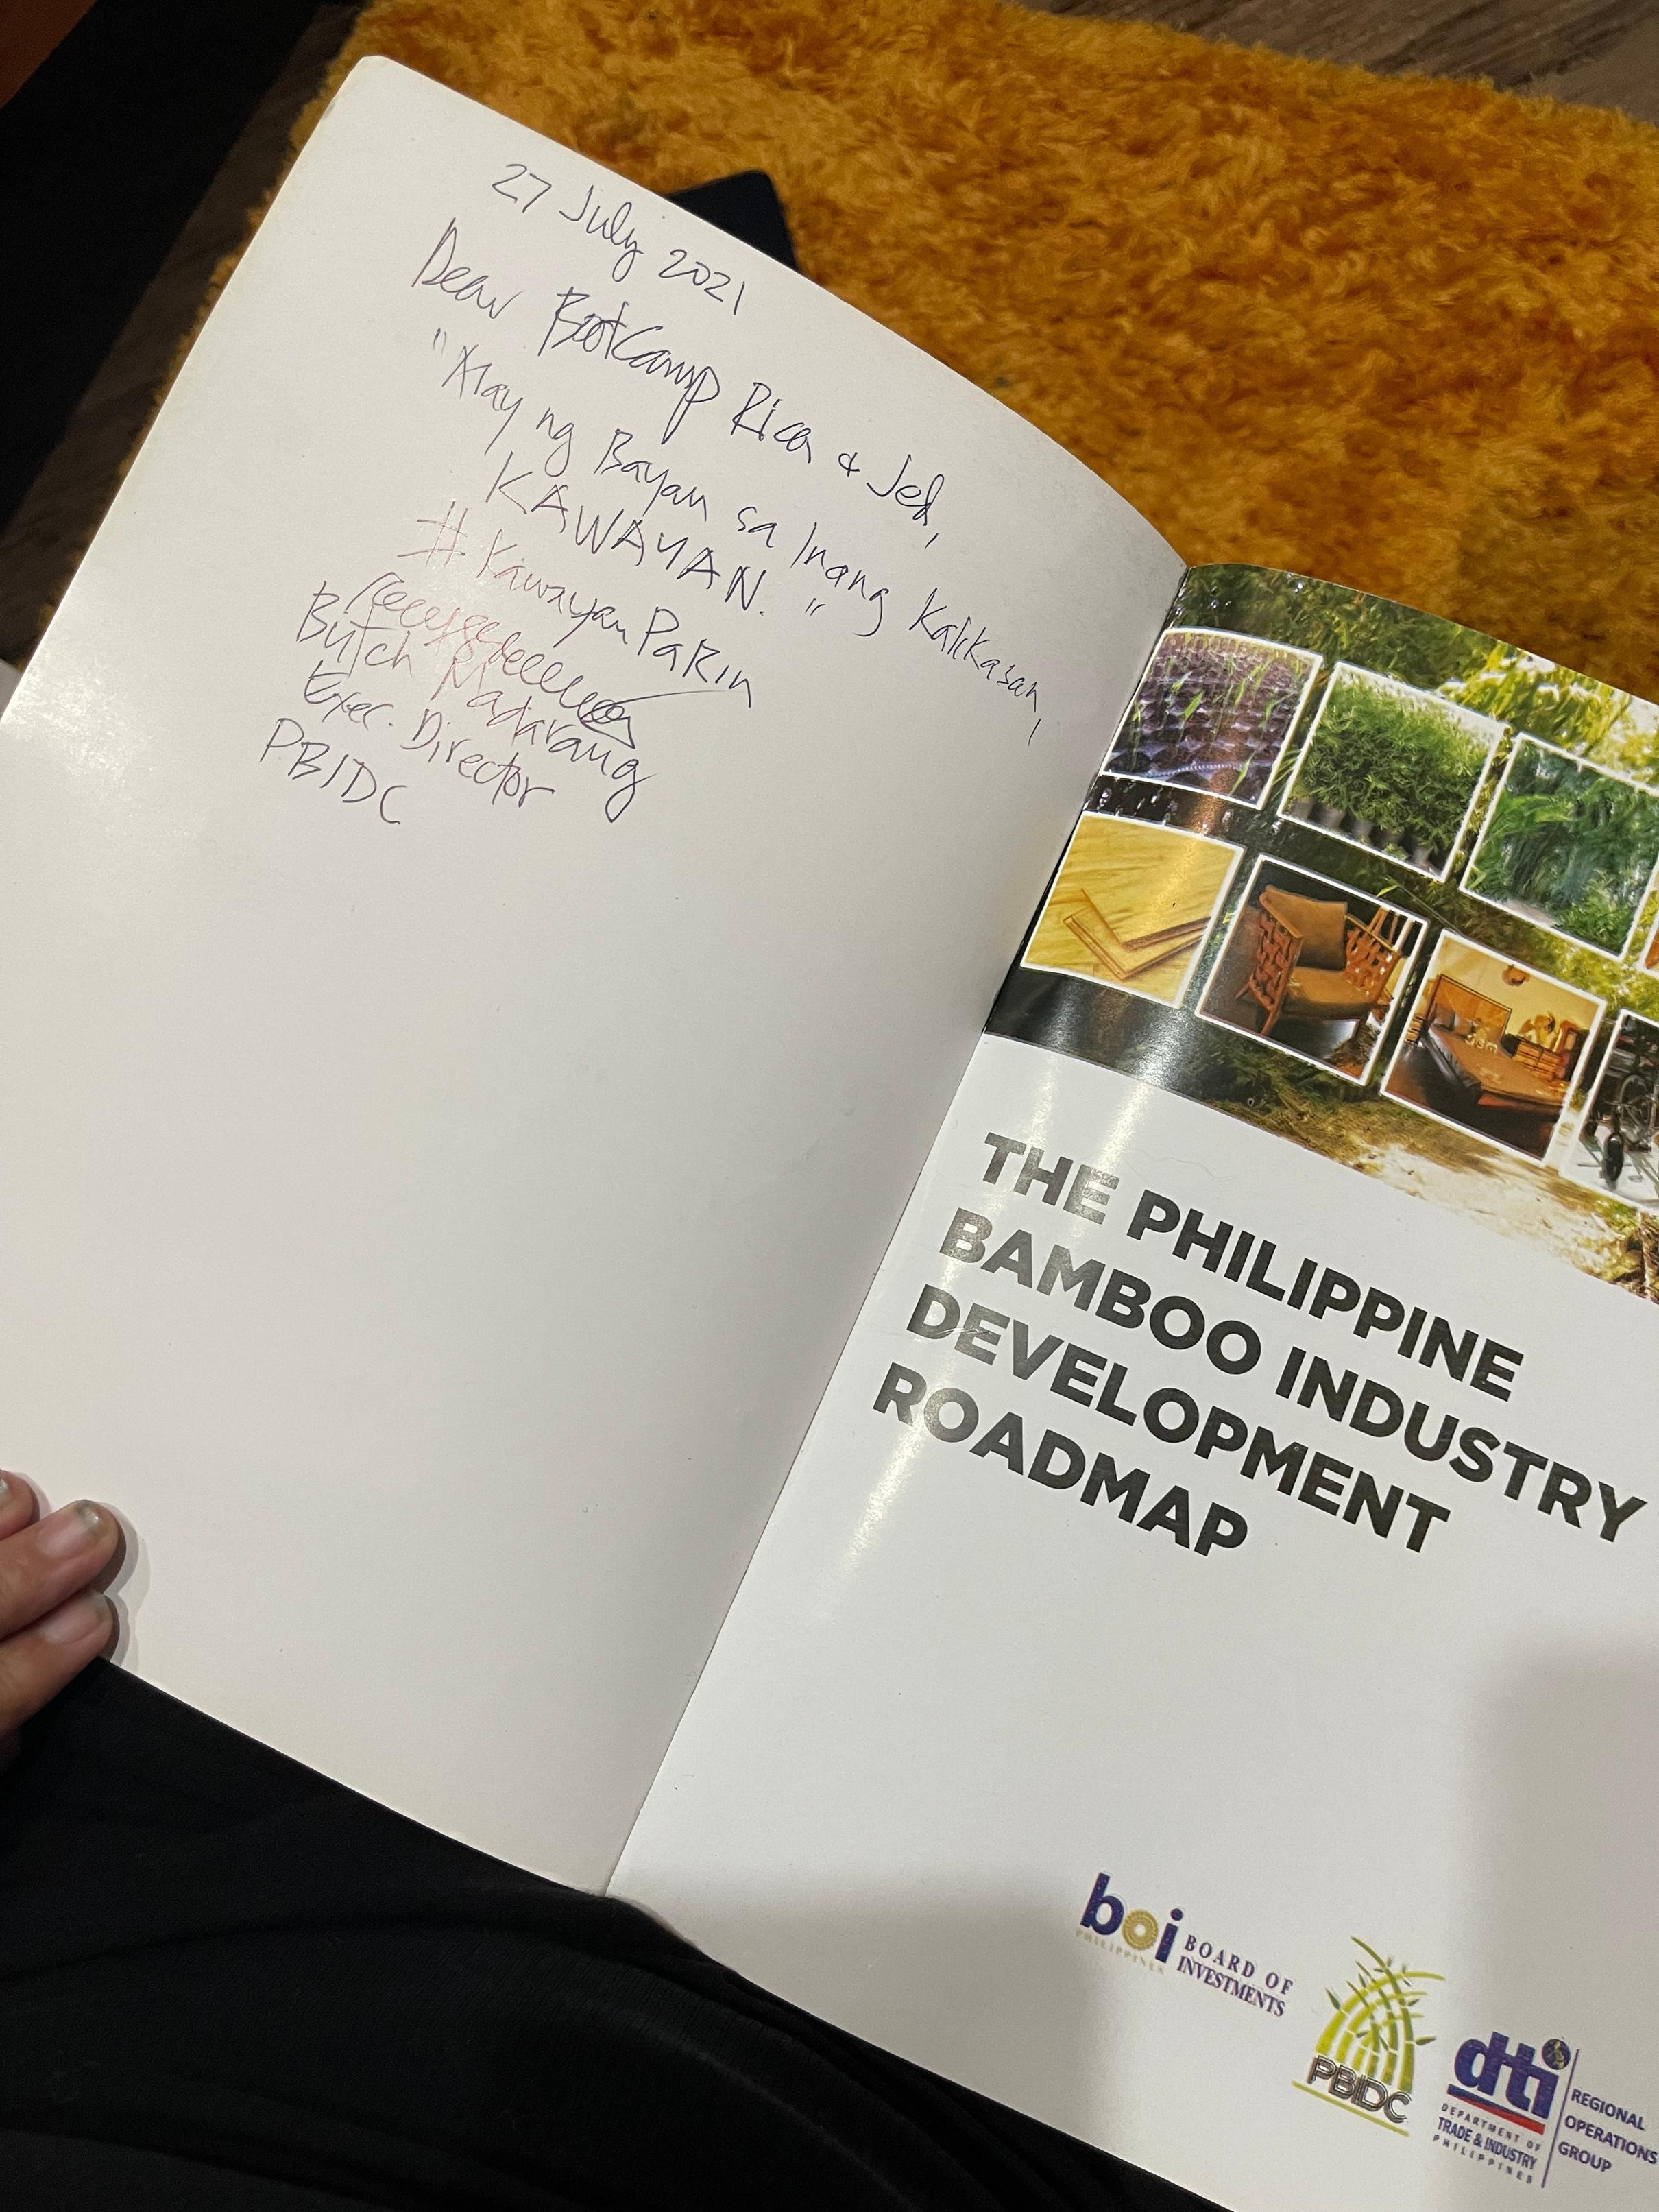 27 July 2021
Dear BootCamp Rica & Jed,
"Alay ng Bayan sa Inang Kalikasan,
KAWAYAN."
#KawayanPaRin
Butch Madarang
Exec. Director
PBIDC
THE PHILIPPINE
BAMBOO INDUSTRY
DEVELOPMENT
ROADMAP
boi
PHILIPPINES
BOARD OF
INVESTMENTS
PBIDC
dti
DEPARTMENT OF
TRADE & INDUSTRY
PHILIPPINES
REGIONAL
OPERATIONS
GROUP